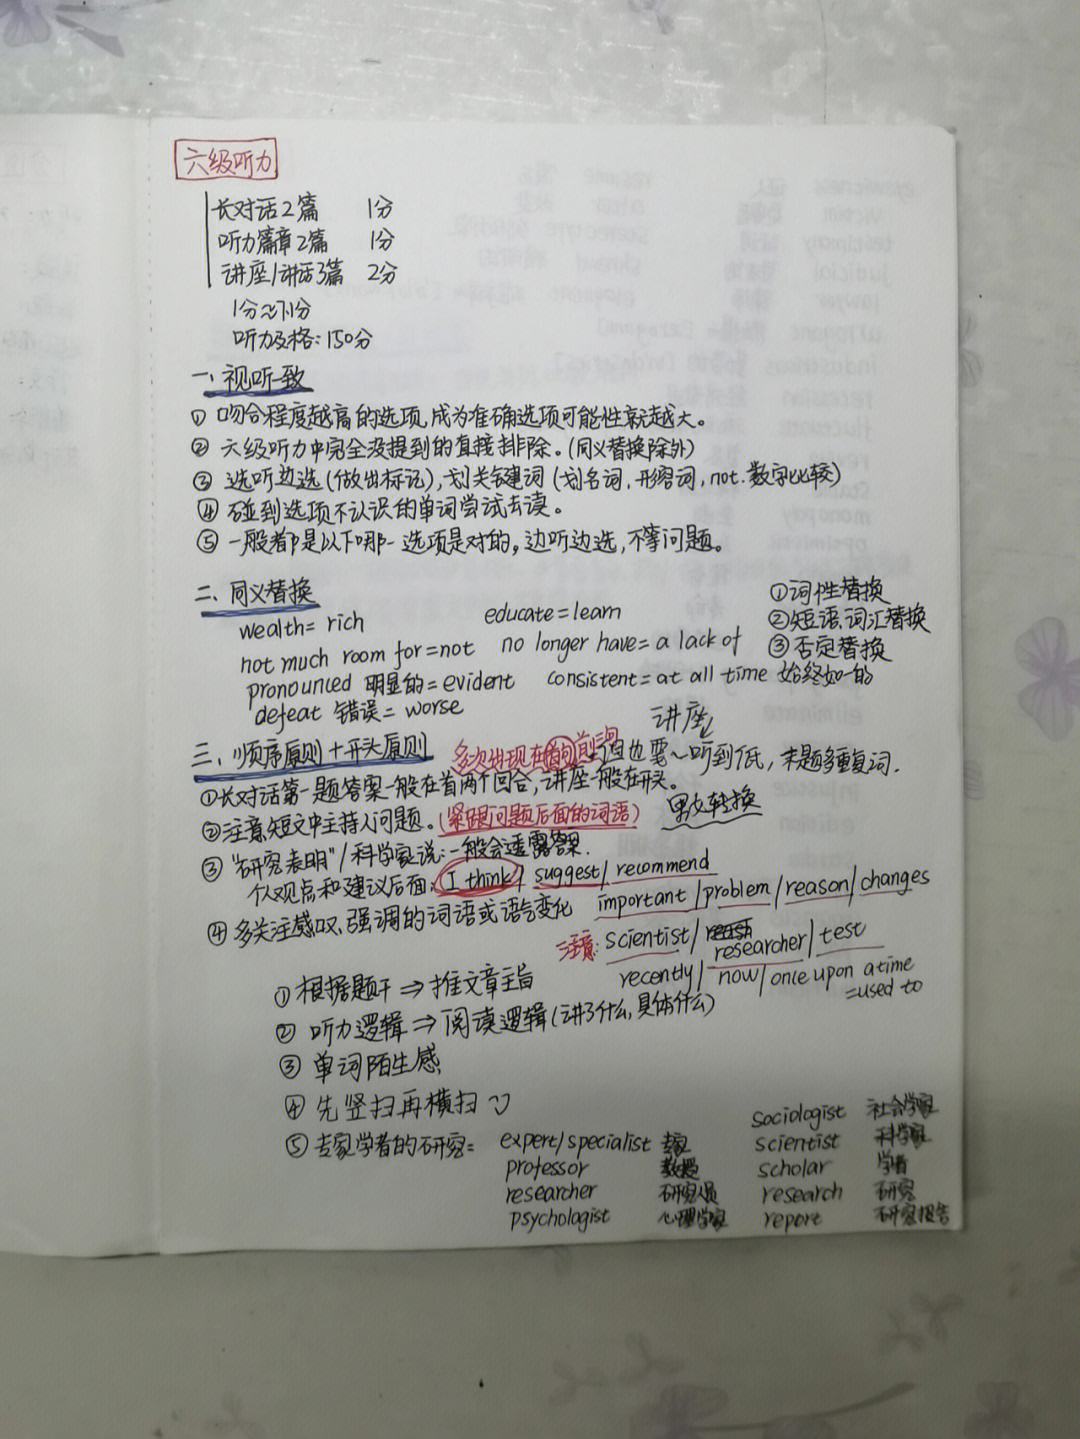 六级听力
长对话2篇 1分
听力篇章2篇 1分
讲座/讲话3篇 2分
1分≈7.1分
听力及格：150分
一、视听一致
① 吻合程度越高的选项，成为准确选项可能性就越大。
② 六级听力中完全没提到的直接排除。(同义替换除外)
③ 选听边选(做出标记)，划关键词(划名词，形容词，not.数字比较)
④ 碰到选项不认识的单词尝试去读。
⑤ 一般都是以下哪一选项是对的，边听边选，不等问题。
二、同义替换
wealth= rich educate=learn
not much room for=not no longer have= a lack of
pronounced 明显的= evident consistent= at all time 始终如一的
defeat 错误= worse
①词性替换
②短语、词汇替换
③否定替换
三、顺序原则+开头原则
讲座
多次出现在首句前三句 但也要~听到底，末题多重复词.
①长对话第一题答案一般在首两个回合，讲座一般在开头。
②注意短文中主持人问题。(紧跟问题后面的词语) 男女转换
③ "研究表明"/科学家说：一般会透露答案.
个人观点和建议后面：I think/ suggest/ recommend
important/problem/reason/changes
④ 多关注感叹、强调的词语或语气变化
注意：scientist/ researcher/ test
recently/ now/ once upon a time
=used to
① 根据题干⇒推文章主旨
② 听力逻辑⇒阅读逻辑(讲了什么，具体什么)
③ 单词陌生感
④ 先竖扫再横扫
⑤ 专家学者的研究= expert/specialist 专家
professor 教授
researcher 研究员
psychologist 心理学家
sociologist 社会学家
scientist 科学家
scholar 学者
research 研究
report 研究报告